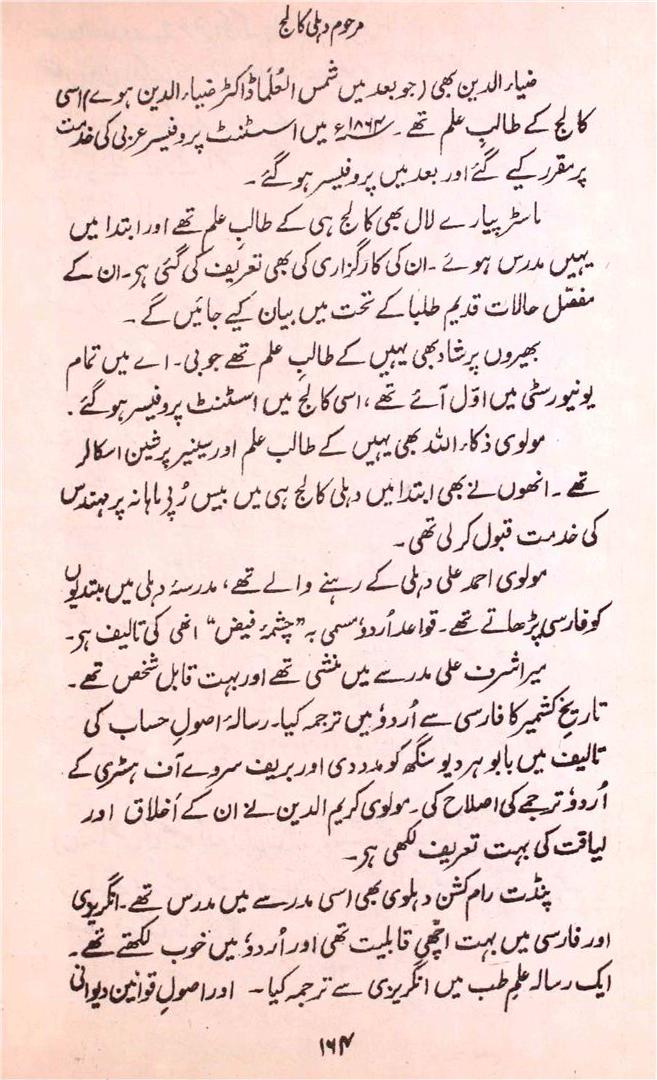 مرحوم دہلی کالج
ضیاء الدین بھی (جو بعد میں شمس العُلَما ڈاکٹر ضیاء الدین ہوے) اسی
کالج کے طالبِ علم تھے ۔ ۱۸۶۴ء میں اسسٹنٹ پروفیسر عربی کی خدمت
پر مقرر کیے گئے اور بعد میں پروفیسر ہو گئے ۔
ماسٹر پیارے لال بھی کالج ہی کے طالبِ علم تھے اور ابتدا میں
یہیں مدرس ہوئے ۔ ان کی کارگزاری کی بھی تعریف کی گئی ہی ۔ ان کے
مفصّل حالات قدیم طلبا کے تحت میں بیان کیے جائیں گے ۔
بھیروں پرشاد بھی یہیں کے طالبِ علم تھے جو بی ۔ اے میں تمام
یونیورسٹی میں اوّل آئے تھے ، اسی کالج میں اسسٹنٹ پروفیسر ہو گئے ۔
مولوی ذکاء اللہ بھی یہیں کے طالب علم اور سینیر پرشین اسکالر
تھے ۔ انھوں نے بھی ابتدا میں دہلی کالج ہی میں بیس رُپی ماہانہ پر مہندس
کی خدمت قبول کر لی تھی ۔
مولوی احمد علی دہلی کے رہنے والے تھے ، مدرسۂ دہلی میں مبتدیوں
کو فارسی پڑھاتے تھے ۔ قواعد اُردؤ مسمی بہ ”چشمۂ فیض“ انھی کی تالیف ہی ۔
میر اشرف علی مدرسے میں منشی تھے اور بہت قابل شخص تھے ۔
تاریخِ کشمیر کا فارسی سے اُردؤ میں ترجمہ کیا ۔ رسالۂ اصولِ حساب کی
تالیف میں بابو ہردیو سنگھ کو مدد دی اور بریف سروے آف ہسٹری کے
اُردؤ ترجمے کی اصلاح کی ۔ مولوی کریم الدین نے ان کے اَخلاق اور
لیاقت کی بہت تعریف لکھی ہی ۔
پنڈت رام کشن دہلوی بھی اسی مدرسے میں مدرس تھے ۔ انگریزی
اور فارسی میں بہت اچھّی قابلیت تھی اور اُردؤ میں خوب لکھتے تھے ۔
ایک رسالہ علمِ طب میں انگریزی سے ترجمہ کیا ۔ اور اصولِ قوانین دیوانی
۱۶۴